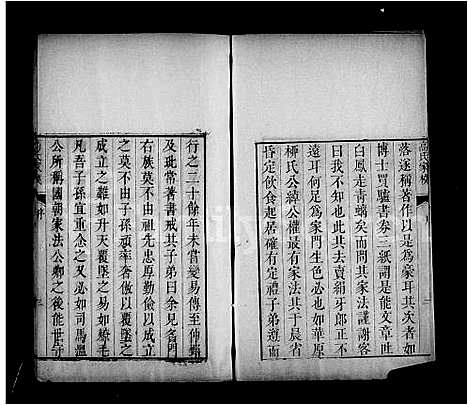 落遂稱著作以是爲豪耳其次者如
博士買驢書券三紙謂是能文章吐
白鳳走青螭矣而問其家法謾謝客
曰我不知也其去賣絹牙郎正不
遠耳何足爲家門生色必也如華原
柳氏公綽公權最有家法其于晨省
昏定飲食起居確有定禮子弟遵而
行之二十餘年未嘗變易傳至仲郢
及玭常著書戒其子弟曰余見名門
右族莫不由祖先忠厚勤儉以成立
之莫不由子孫頑率奢傲以覆墜之
成立之難如升天覆墜之易如燎毛
凡吾子孫宜重念之又必如司馬溫
公所稱國朝家法公卿之後能世守